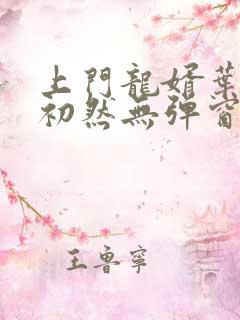 上門龍婿葉
初然無彈窗
王魯寧